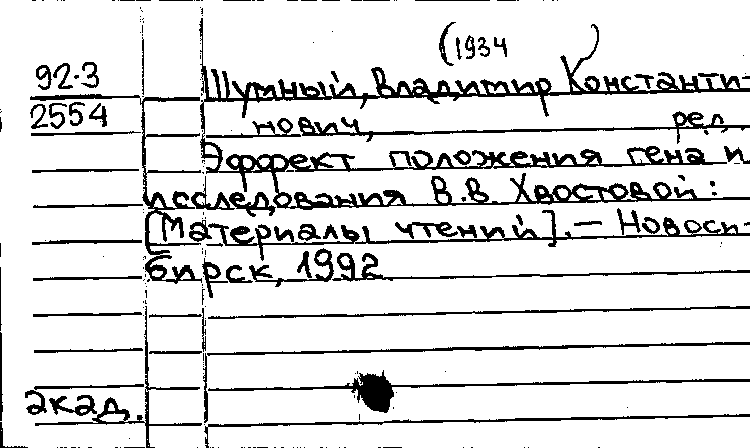 (1934 )
92.3 Шумный, Владимир Константи-
2554 нович, ред.
Эффект положения гена и
исследования В.В Хвостовой:
[Материалы чтений]. — Новоси-
бирск, 1992
акад.